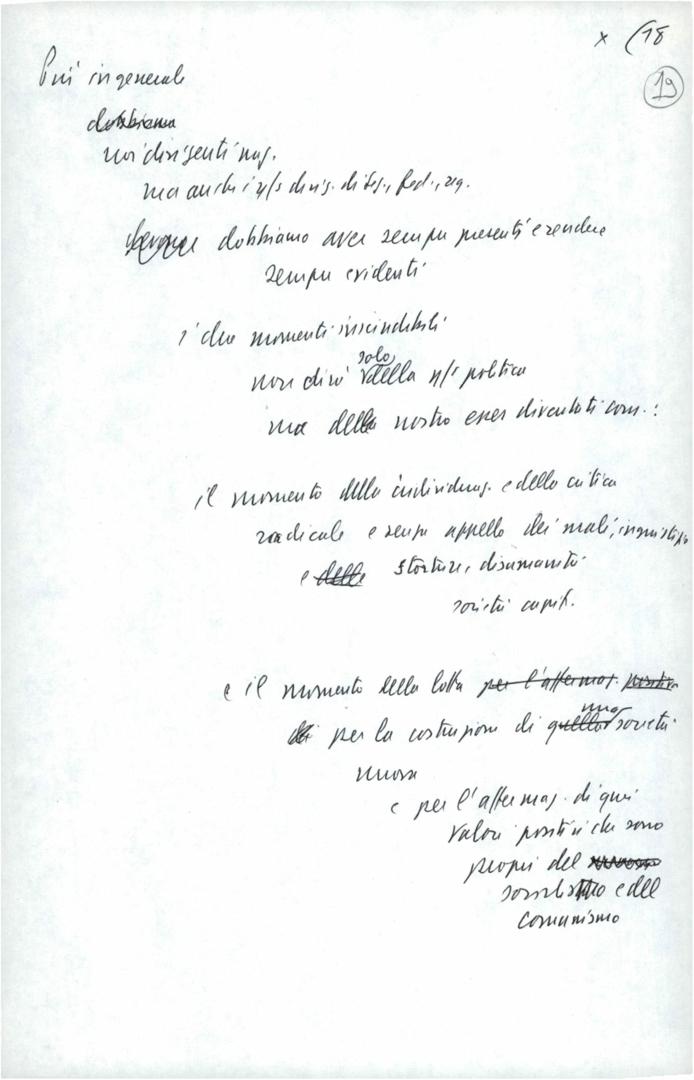 x (18
19
Più in generale
dobbiamo
noi dirigenti naz.
ma anche i n/s dirig. di sez., fed., reg.
dobbiamo aver sempre presenti e rendere
sempre evidenti
i due momenti inscindibili
solo
non dirò della n/s politica
ma della nostro esser diventati com. :
il momento della individuaz. e della critica
radicale e senza appello dei mali, ingiustizie
e delle storture, disumanità
società capit.
e il momento della lotta per l'affermaz. positiva
una
per la costruzione di quella società
nuova
e per l'affermaz. di quei
valori positivi che sono
propri del
socialismo e del
comunismo